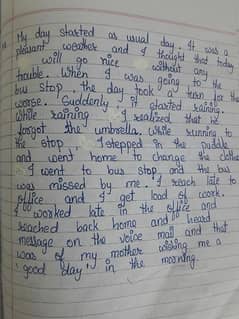 My day started as usual day. It was a
pleasant weather and I thought that today
will go nice without any
trouble. When I was going to the
bus stop the day took a turn for the
worse. Suddenly, it started raining.
While raining I realized that he
forgot the umbrella. While running to
the stop, I stepped in the puddle
and went home to change the clothe
I went to bus stop and the bus
was missed by me. I reach late to
office and I get load of work.
I worked late in the office and
reached back home and heard
message on the voice mail and that
was of my mother wishing me a
'good day' in the morning.